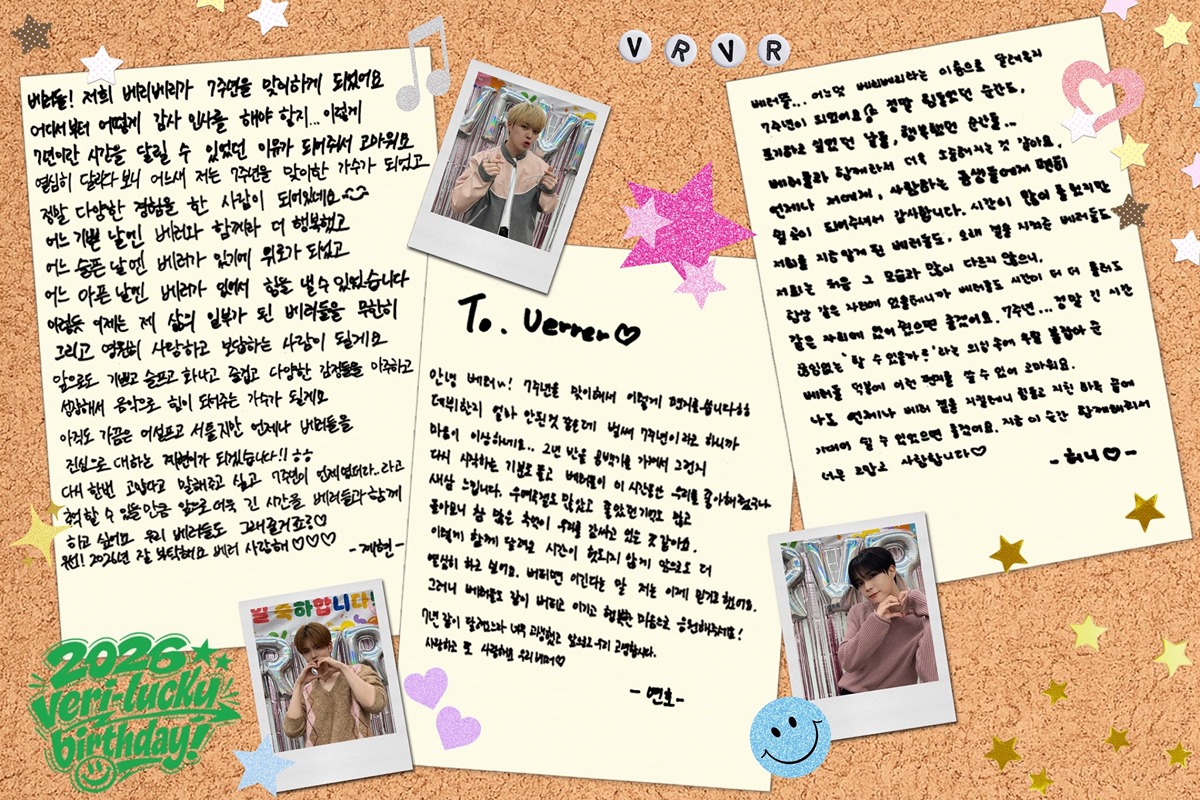 베러들! 저희 베리베리가 7주년을 맞이하게 되었어요
어디서부터 어떻게 감사 인사를 해야 할지... 이렇게
7년이란 시간을 달릴 수 있었던 이유가 되어주셔서 고마워요
열심히 달리다 보니 어느새 저는 7주년을 맞이한 가수가 되었고
정말 다양한 경험을 한 사람이 되어있네요
어느 기쁜 날엔 베러와 함께라 더 행복했고
어느 슬픈 날엔 베러가 있기에 위로가 되었고
어느 아픈 날엔 베러가 있어서 힘을 낼 수 있었습니다
이렇듯 이제는 제 삶의 일부가 된 베러들을 무한히
그리고 영원히 사랑하고 보답하는 사람이 될게요
앞으로도 기쁘고 슬프고 화나고 즐겁고 다양한 감정들을 마주하고
성장해서 음악으로 힘이 되어주는 가수가 될게요
아직도 가끔은 어설프고 서툴지만 언제나 베러들을
진심으로 대하는 계현이가 되겠습니다!! ㅎㅎ
다시 한번 고맙다고 말해주고 싶고 7주년이 언제였더라..라고
할 수 있을 만큼 앞으로 더욱 긴 시간을 베러들과 함께
하고 싶어요 우리 베러들도 그래줄거죠?♡
2026년 잘 부탁해요 베러 사랑해 ♡♡♡
-계현-
To. Verrer♡
안녕 베러들! 7주년을 맞이해서 이렇게 편지를 씁니다ㅎㅎ
데뷔한지 얼마 안된것 같은데 벌써 7주년이라고 하니까
마음이 이상하네요.. 2년 반을 공백기를 가져서 그런지
다시 시작하는 기분도 들고 베러들이 이 시간동안 우리를 좋아해줬구나
새삼 느낍니다. 우여곡절도 많았고 좋았던 기억도 많고
돌아보니 참 많은 추억이 우리를 감싸고 있는 것 같아요.
이렇게 함께 달려온 시간이 헛되지 않게 앞으로 더
열심히 하고 싶어요. 버티면 이긴다는 말 저는 이제 믿기로 했어요.
그러니 베러들도 같이 버티고 이기고 행복한 마음으로 응원해주세요!
7년 같이 달려오느라 너무 고생했고 앞으로 우리 고생합시다.
사랑하고 또 사랑해요 우리 베러♡
-연호-
베러들... 어느덧 베리베리라는 이름으로 달려온지
7주년이 되었어요 정말 힘들었던 순간도,
포기하고 싶었던 날들, 행복했던 순간들...
베러들과 함께라서 더욱 소중해지는 것 같아요,
언제나 저에게, 사랑하는 동생들에게 편히
쉴 곳이 되어주셔서 감사합니다. 시간이 많이 흘렀지만
저희를 지금 알게 된 베러들도, 오래 곁을 지켜준 베러들도
저희는 처음 그 모습과 많이 다르지 않으니,
항상 같은 자리에 있을테니까 베러들도 시간이 더 더 흘러도
같은 자리에 있어 줬으면 좋겠어요. 7주년... 정말 긴 시간
끊임없는 '할 수 있을까?' 라는 의심 속에 두 팔 붙잡아 준
베러들 덕분에 이런 편지를 쓸 수 있어 고마워요.
나도 언제나 베러 곁을 지킬테니 힘들고 지친 하루 끝에
기대어 쉴 수 있었으면 좋겠어요. 지금 이 순간 함께해줘서
너무 고맙고 사랑합니다♡
-허니♡-
VRVR
2026
veri-lucky
birthday!